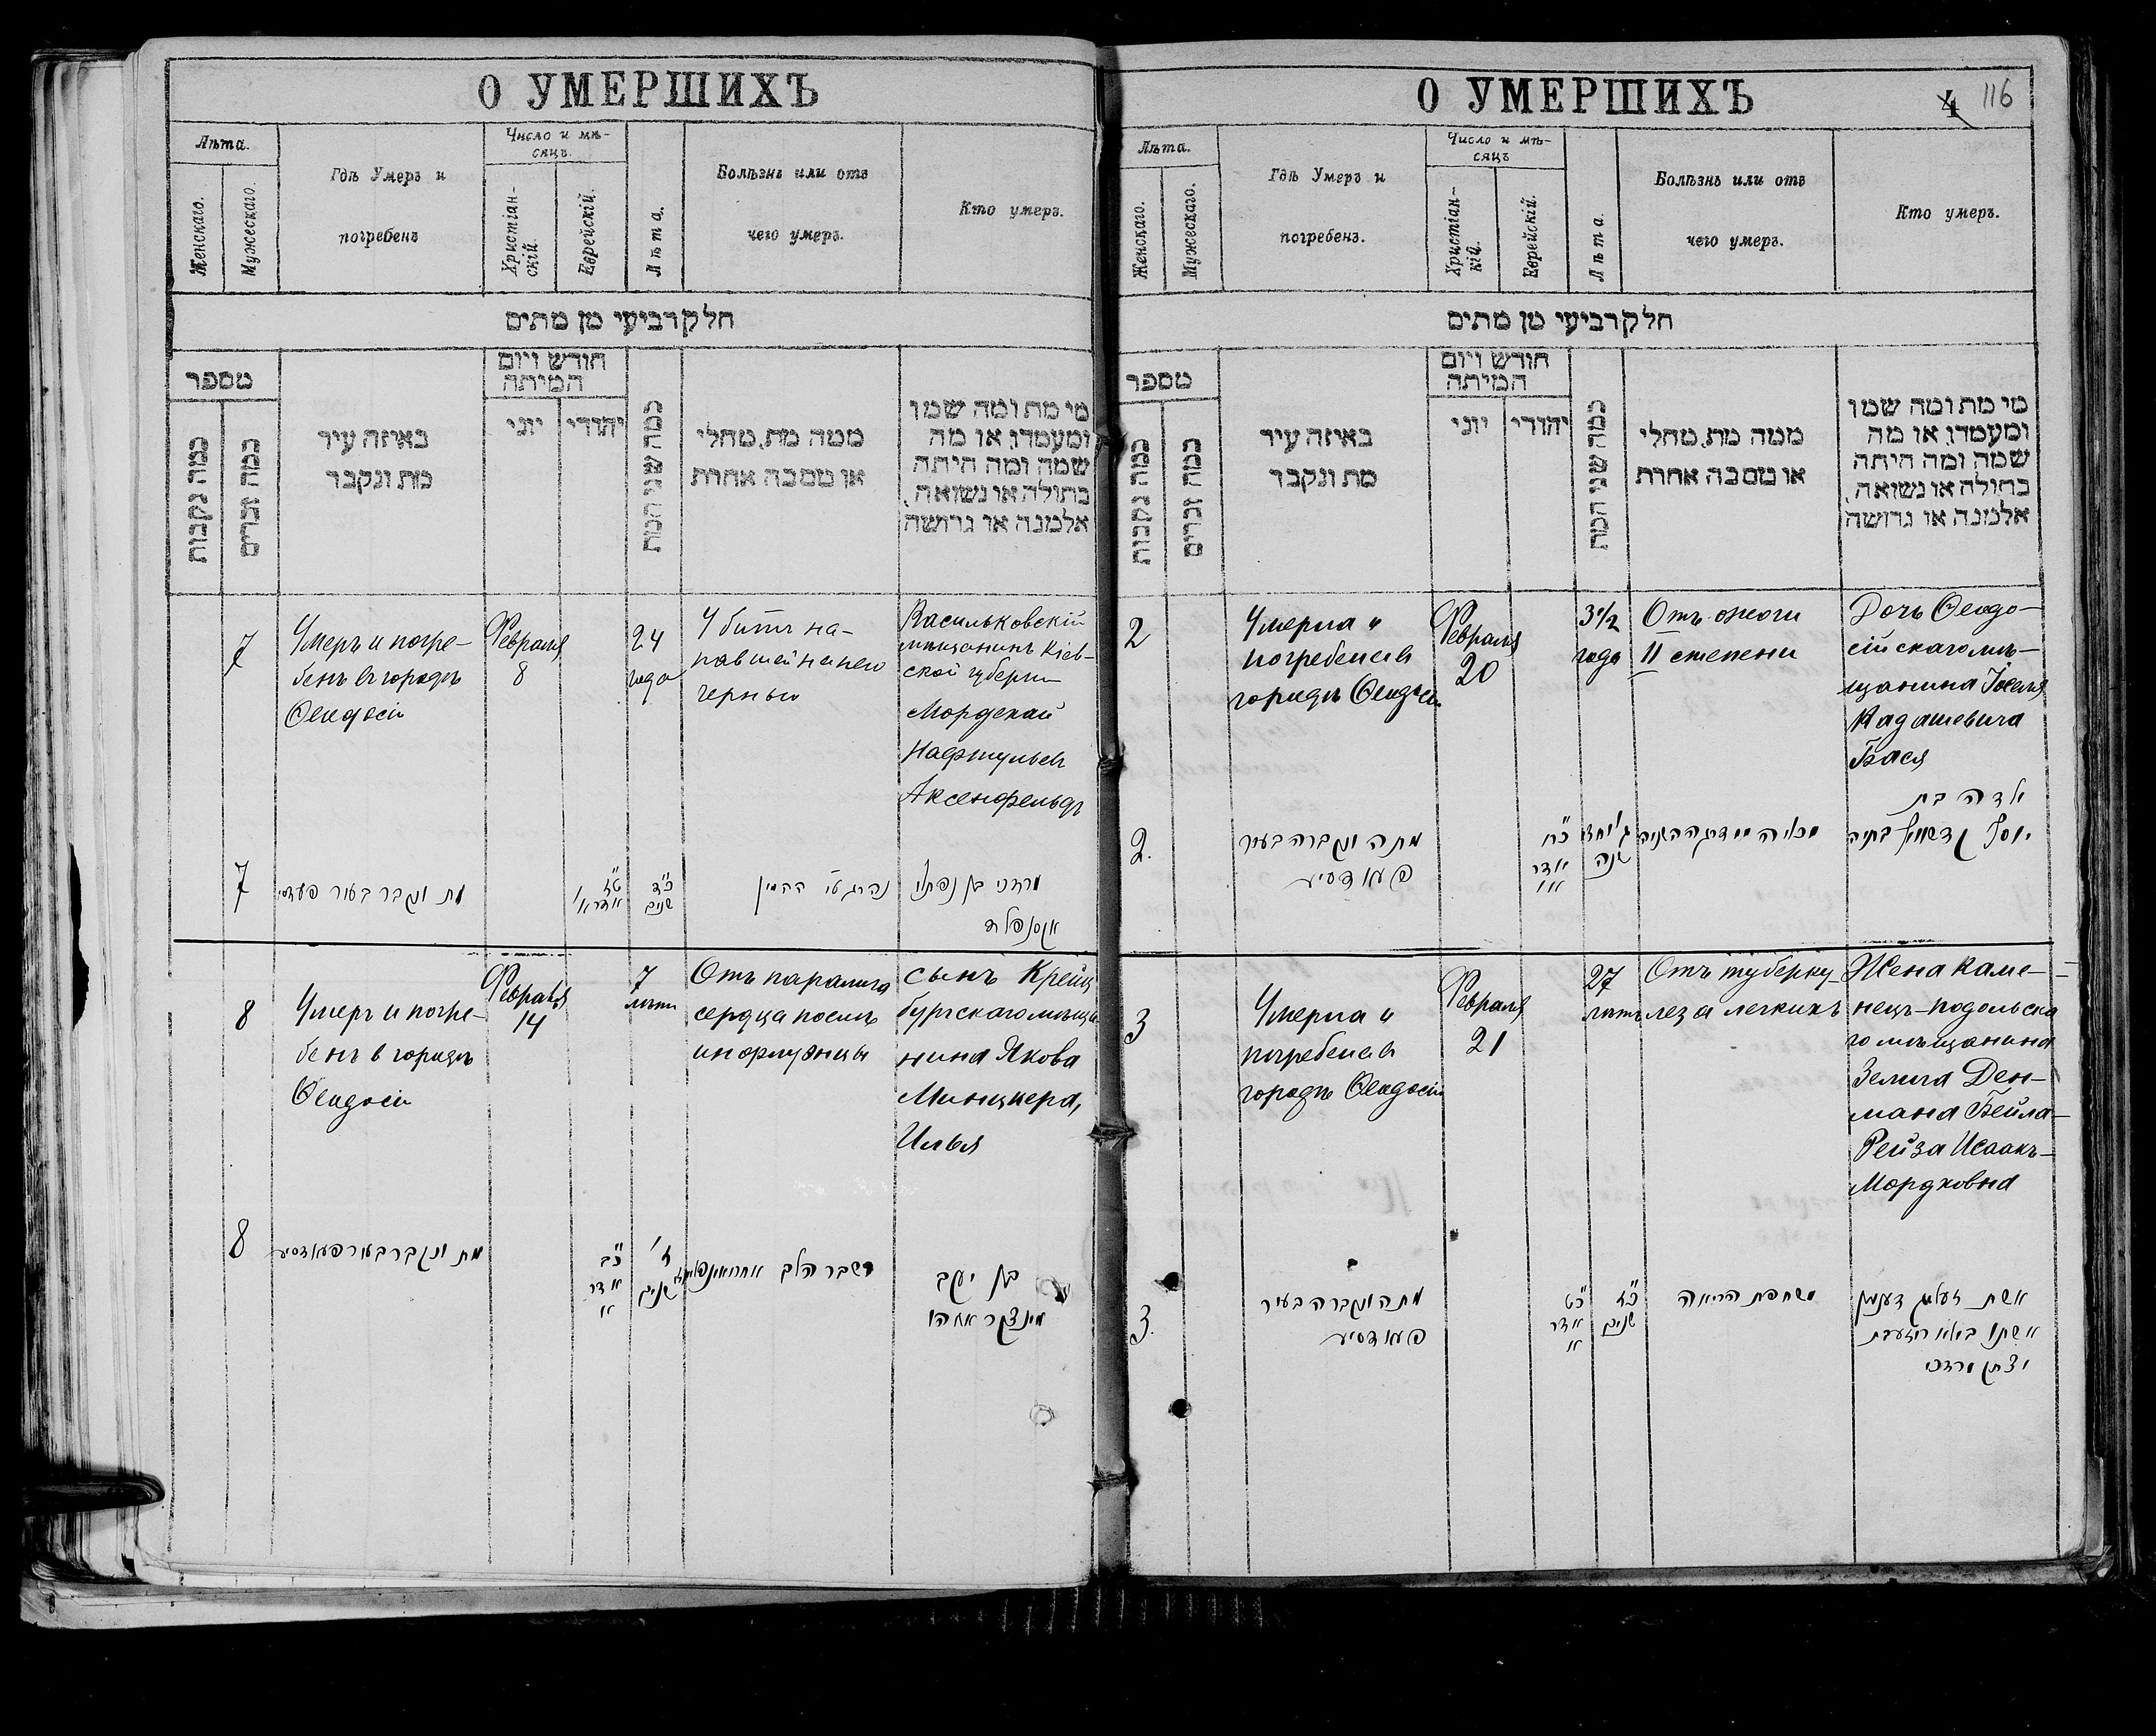 О УМЕРШИХЪ
Лѣта.
Женскаго.
Мужескаго.
Гдѣ Умеръ и
погребенъ
Число и мѣ-
сяцъ.
Христіан-
скій.
Еврейскій.
Лѣта.
Болѣзнь или отъ
чего умеръ.
Кто умеръ.
חלק רביעי מן מתים
מספר
כמה נקבות
כמה זכרים
באיזה עיר
מת ונקבר
חודש ויום
המיתה
יוני
יהודי
כמה שני המת
ממה מת, מחלי
או מסבה אחרת
מי מת ומה שמו
ומעמדו, או מה
שמה ומה היתה
בתולה או נשואה,
אלמנה או גרושה
7
Умеръ и погре-
бенъ въ городѣ
Ѳеодосіи
Февраля
8
24
года
Убитъ на-
павшей на него
Васильковскій
мѣщанинъ Кіев-
ской губерніи
Мордехай
Нафтульевъ
Аксенфельдъ
7
מת ונקבר בעיר
כ"ד
שנים
מרדכי בן נפתלי
אקסנפלד
8
Умеръ и погре-
бенъ в городѣ
Ѳеодосіи
Февраля
14
7
лѣтъ
Отъ паралича
сердца послѣ
инфлуэнцы
сынъ Крейц
бургскаго мѣща
нина Якова
Минцкера,
Илья
8
מת ונקבר בעיר פעאדסיע
כ"ב
אדר
א
ז'
שנים
בן יעקב
מינצקר
О УМЕРШИХЪ
4 116
Лѣта.
Женскаго.
Мужескаго.
Гдѣ Умеръ и
погребенъ.
Число и мѣ-
сяцъ
Христіан-
кій.
Еврейскій.
Лѣта
Болѣзнь или отъ
чего умеръ.
Кто умеръ.
חלק רביעי מן מתים
מספר
כמה נקבות
כמה זכרים
באיזה עיר
מת ונקבר
חודש ויום
המיתה
יוני
יהודי
כמה שני המת
ממה מת, מחלי
או מסבה אחרת
מי מת ומה שמו
ומעמדו, או מה
שמה ומה היתה
בתולה או נשואה,
אלמנה או גרושה
2
Умерла и
погребена в
городѣ Ѳеодосіи
Февраля
20
3½
года
Отъ ожоги
II степени
Дочь Ѳеодо-
сійскаго мѣ-
щанина Іоселя
Кадашевича
Бася
2.
מתה ונקברה בעיר
פעאדסיע
כ"ח
אדר
שנה
ילדה בת
יוסף
3
Умерла и
погребена в
городѣ Ѳеодосіи
Февраля
21
27
лѣтъ
Отъ туберку-
леза легкихъ
Жена Каме-
нецъ-Подольска
го мѣщанина
Зелига Ден-
мана Бейла-
Рейза Исаакъ-
Мордковна
3.
מתה ונקברה בעיר
פעאדסיע
כ"ט
אדר
א
כ"ז
שנים
משחפת הריאה
אשת זעליג דענמן
יצחק מרדכי